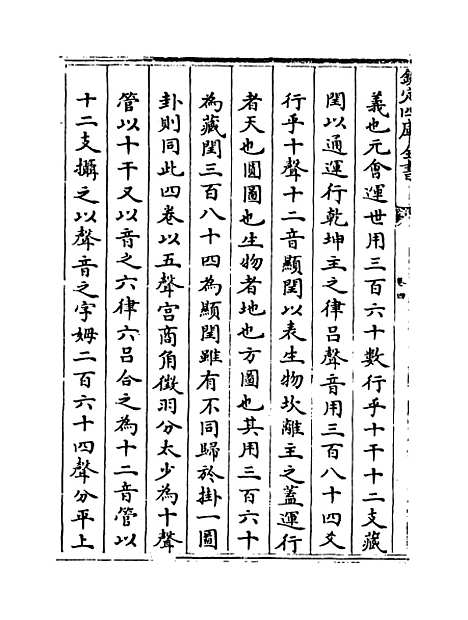 欽定四庫全書
卷四
義也元會運世用三百六十數行乎十干十二支藏
閏以通運行乾坤主之律呂聲音用三百八十四爻
行乎十聲十二音顯閏以表生物坎離主之蓋運行
者天也圓圖也生物者地也方圖也其用三百六十
為藏閏三百八十四為顯閏雖有不同歸於掛一圖
卦則同此四卷以五聲宮商角徵羽分太少為十聲
管以十干又以音之六律六呂合之為十二音管以
十二支攝之以聲音之字姆二百六十四聲分平上